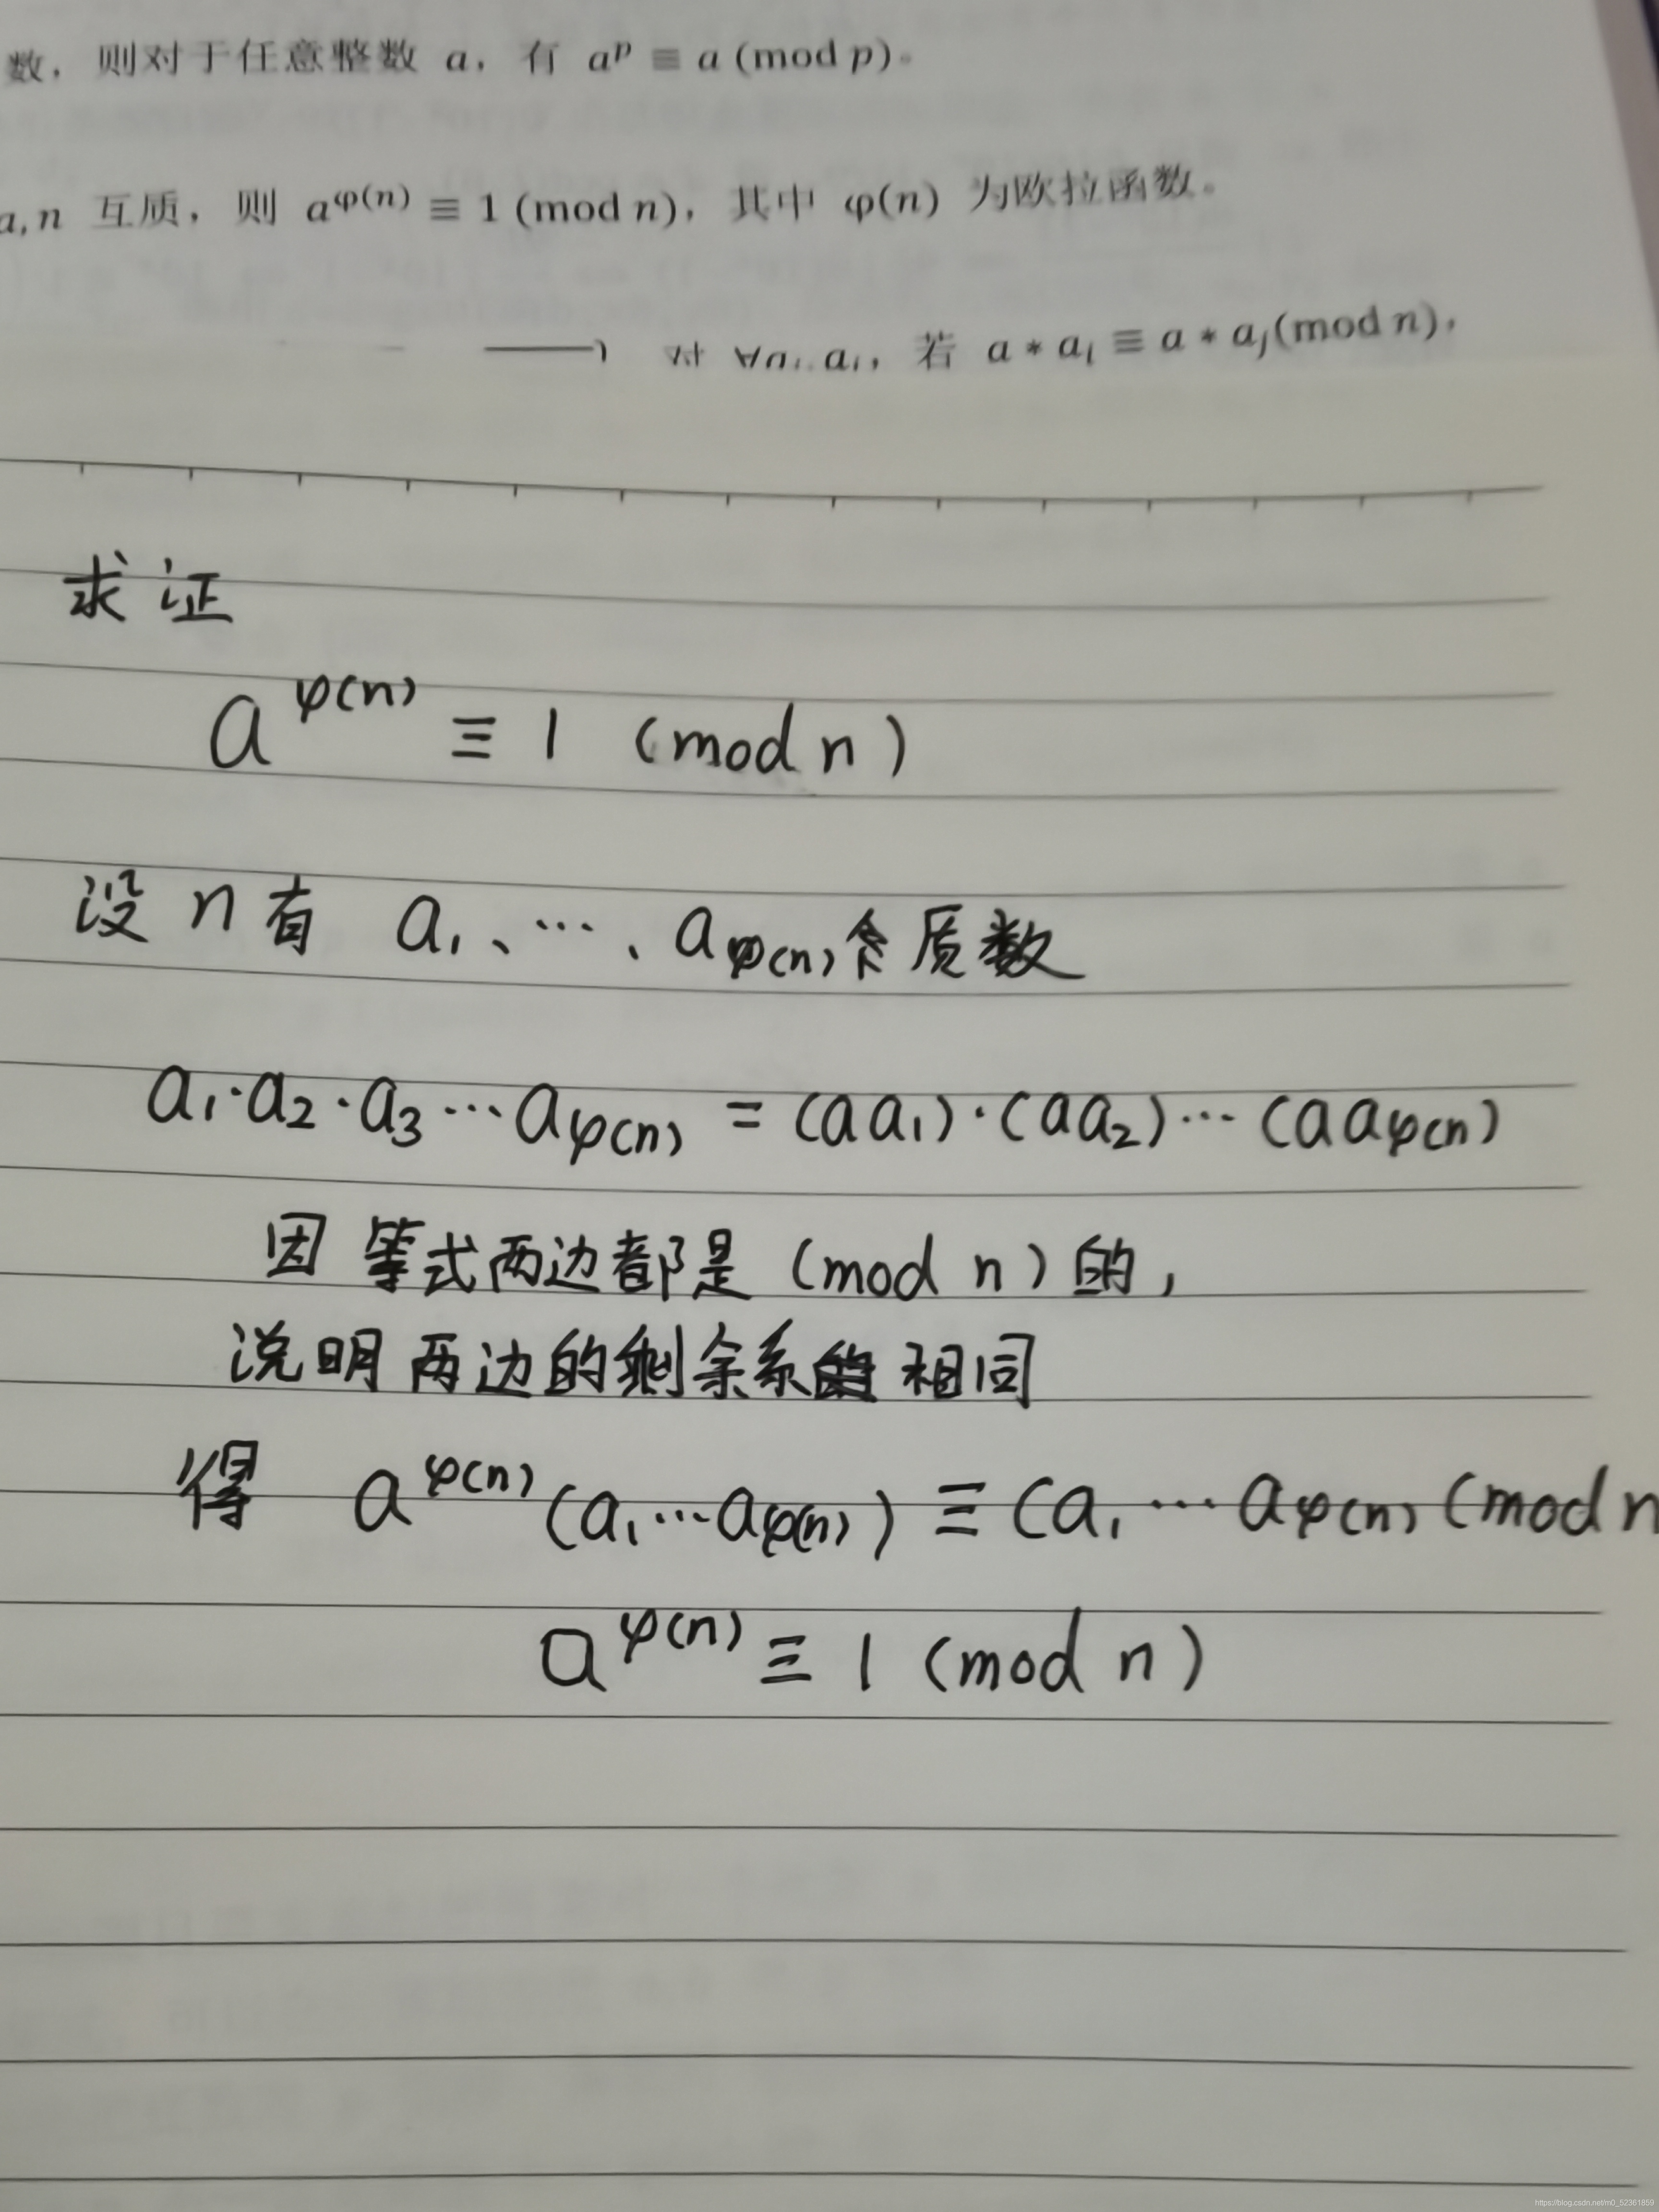 数，则对于任意整数 a，有 aᵖ ≡ a (mod p)。
a, n 互质，则 a^φ(n) ≡ 1 (mod n)，其中 φ(n) 为欧拉函数。
对 ∀aᵢ, aⱼ，若 a * aᵢ ≡ a * aⱼ(mod n)，
求证
a^φ(n) ≡ 1 (mod n)
设 n 有 a₁、…、a_φ(n) 质数
a₁·a₂·a₃…a_φ(n) = (aa₁)·(aa₂)…(aa_φ(n))
因 等式两边都是 (mod n) 的，
说明两边的剩余系 相同
得 a^φ(n) (a₁…a_φ(n)) ≡ (a₁ … a_φ(n) (mod n
a^φ(n) ≡ 1 (mod n)
https://blog.csdn.net/m0_52361859